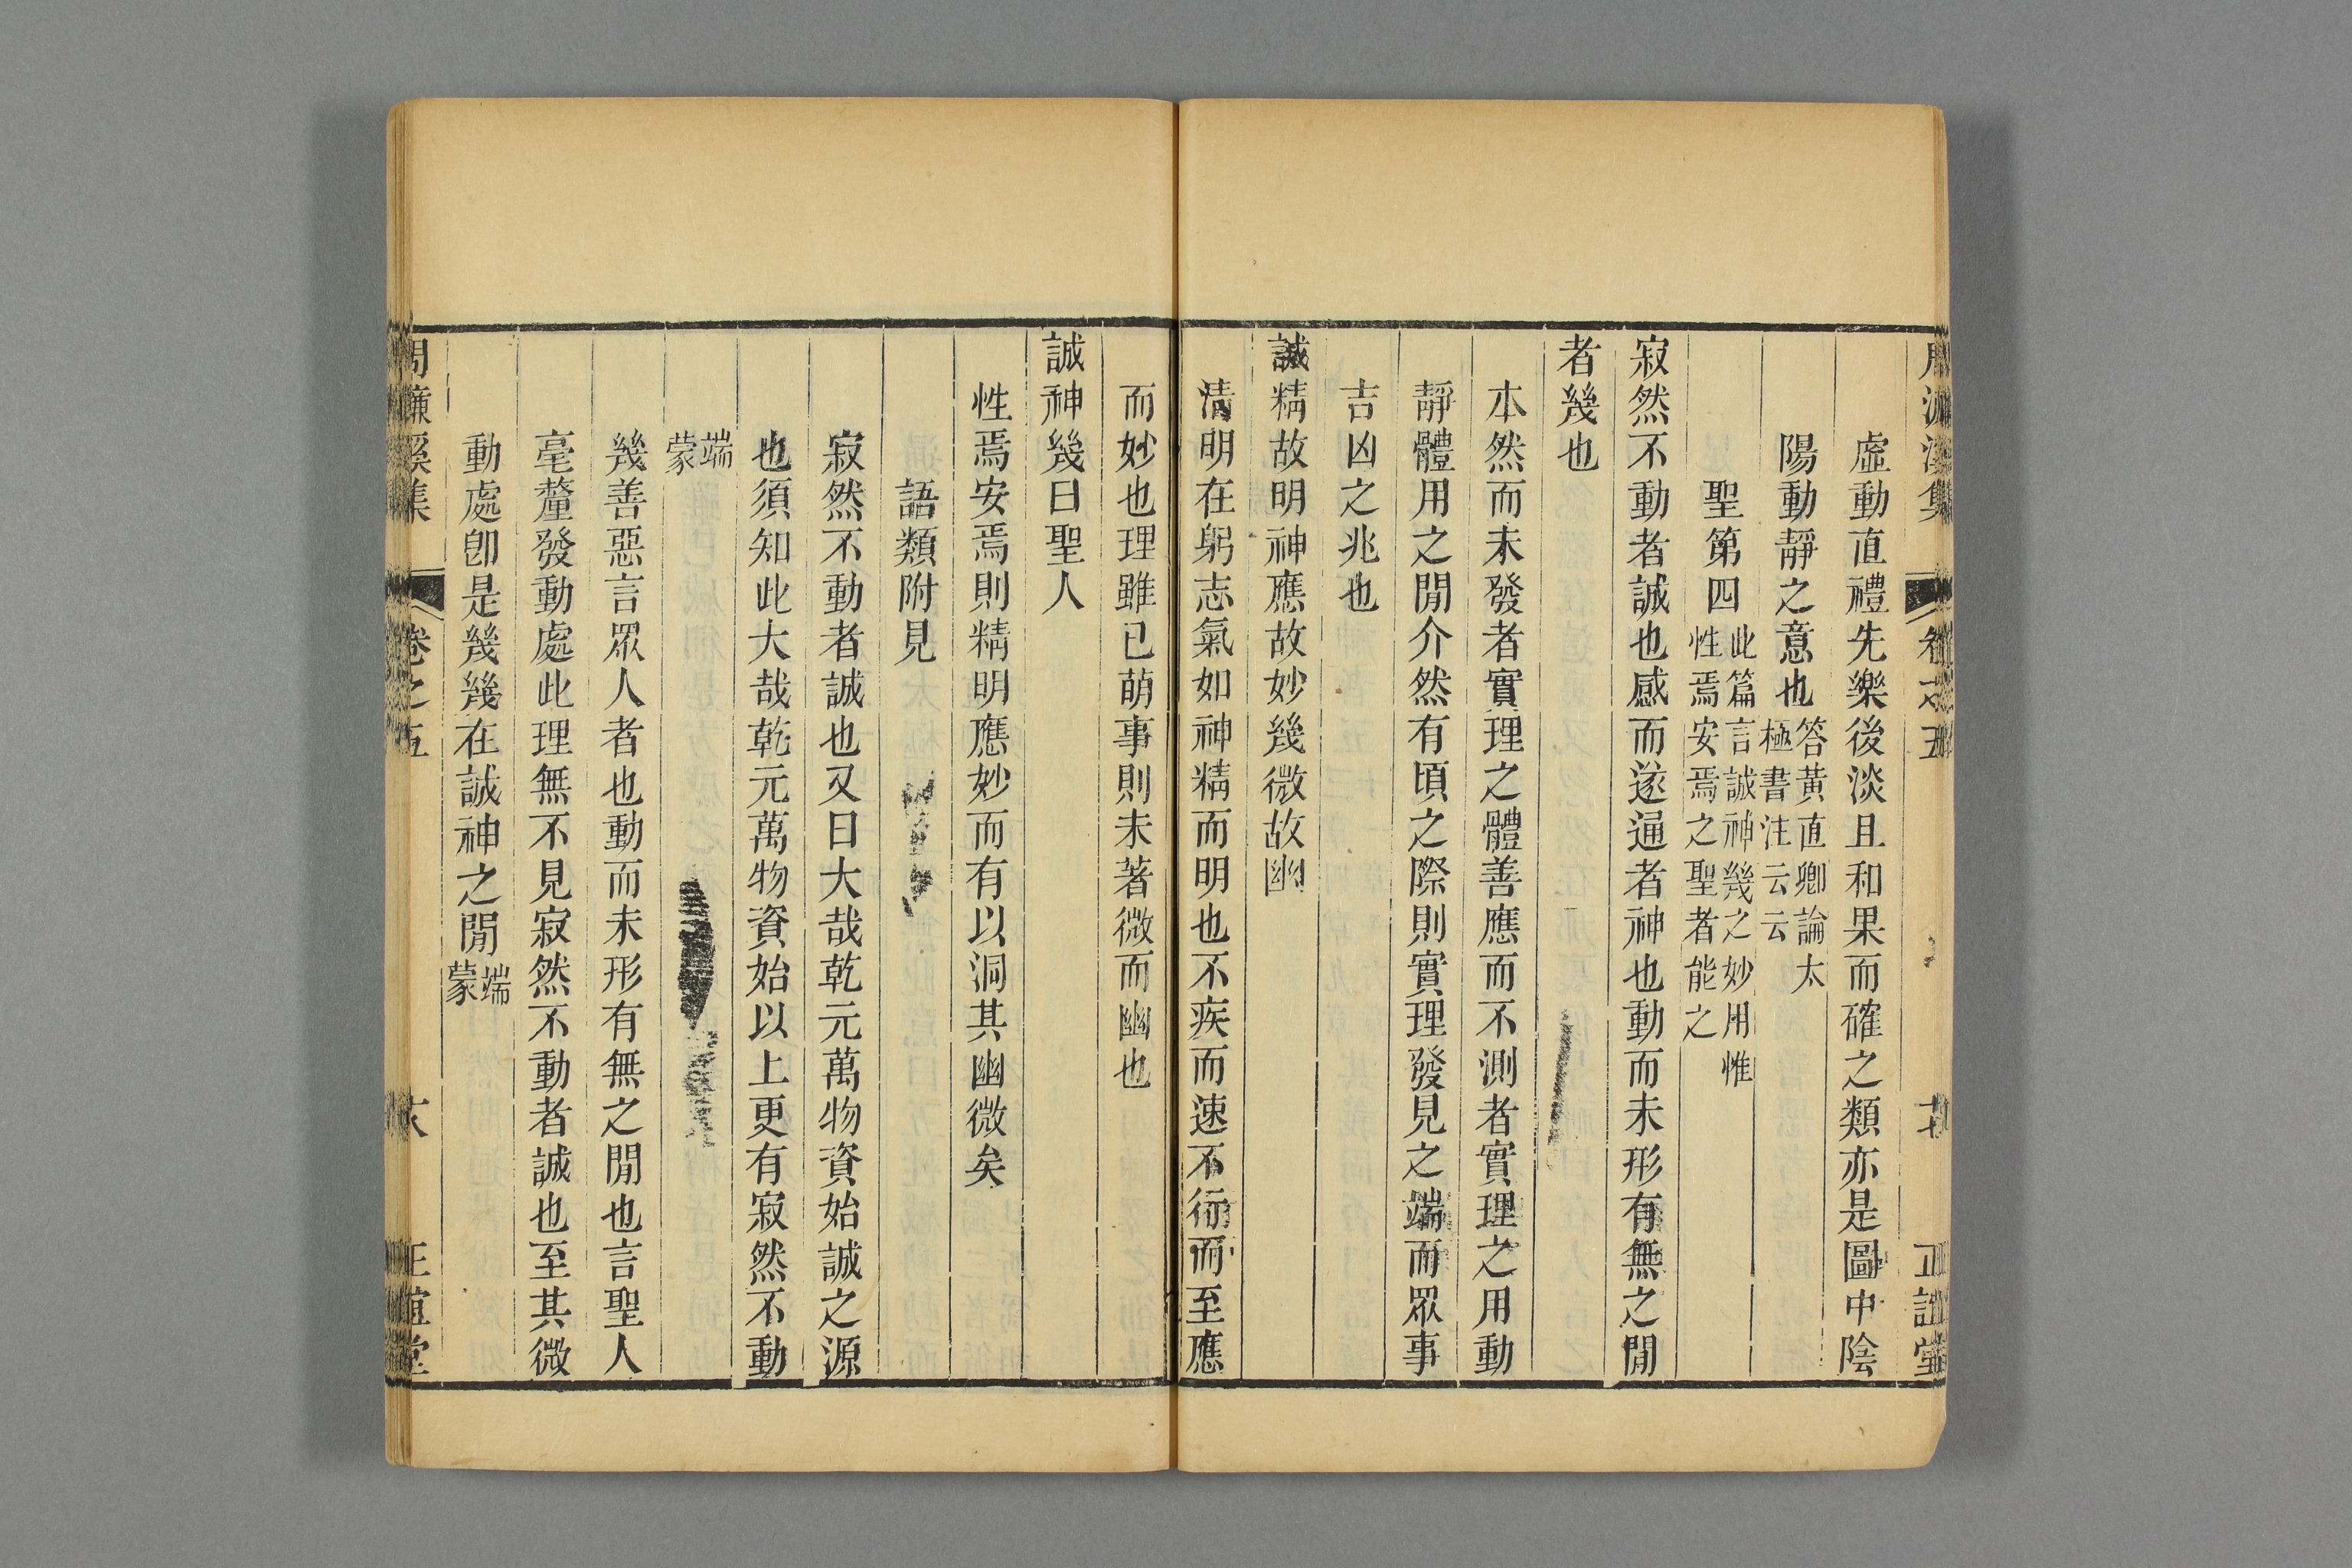 虛動直禮先樂後淡且和果而確之類亦是圖中陰
陽動靜之意也答黃直卿論太
極書注云云
聖第四此篇言誠神幾之妙用惟
性焉安焉之聖者能之
寂然不動者誠也感而遂通者神也動而未形有無之閒
者幾也
本然而未發者實理之體善應而不測者實理之用動
靜體用之閒介然有頃之際則實理發見之端而眾事
吉凶之兆也
誠精故明神應故妙幾微故幽
清明在躬志氣如神精而明也不疾而速不行而至應
而妙也理雖已萌事則未著微而幽也
誠神幾曰聖人
性焉安焉則精明應妙而有以洞其幽微矣
語類附見
寂然不動者誠也又曰大哉乾元萬物資始誠之源
也須知此大哉乾元萬物資始以上更有寂然不動
端
蒙
幾善惡言眾人者也動而未形有無之閒也言聖人
毫釐發動處此理無不見寂然不動者誠也至其微
動處卽是幾幾在誠神之閒端
蒙
周濂溪集 卷之五